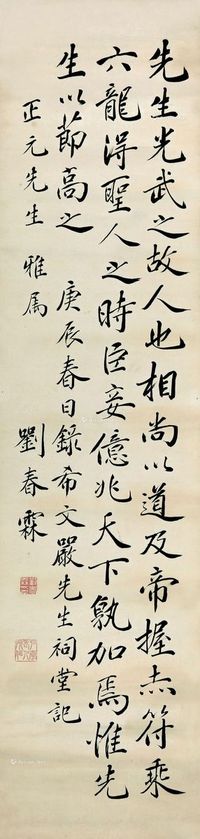 先生光武之故人也相尚以道及帝握赤符乘
六龍得聖人之時臣妾億兆天下孰加焉惟先
生以節高之
庚辰春日錄希文嚴先生祠堂記
正元先生雅属
劉春霖